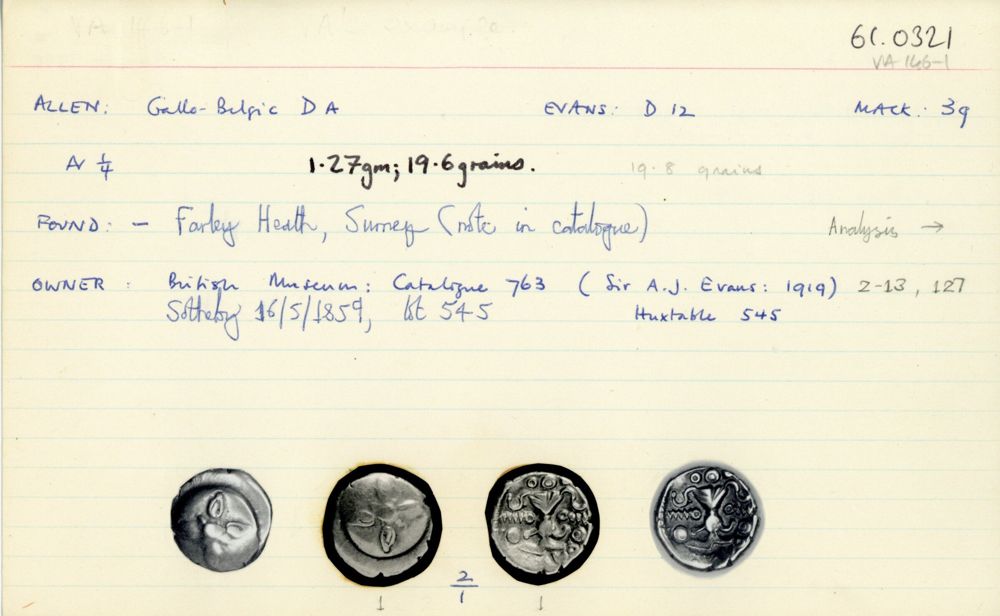 61.0321
VA 146-1
ALLEN: Gallo-Belgic DA EVANS: D 12 MACK: 39
AV 1/4 1.27gm; 19.6 grains. 19.8 grains
FOUND: - Farley Heath, Surrey (note in catalogue) Analysis →
OWNER: British Museum: Catalogue 763 (Sir A.J. Evans: 1919) 2-13, 127
Sotheby 16/5/1859, lot 545 Huxtable 545
2/1
1 1